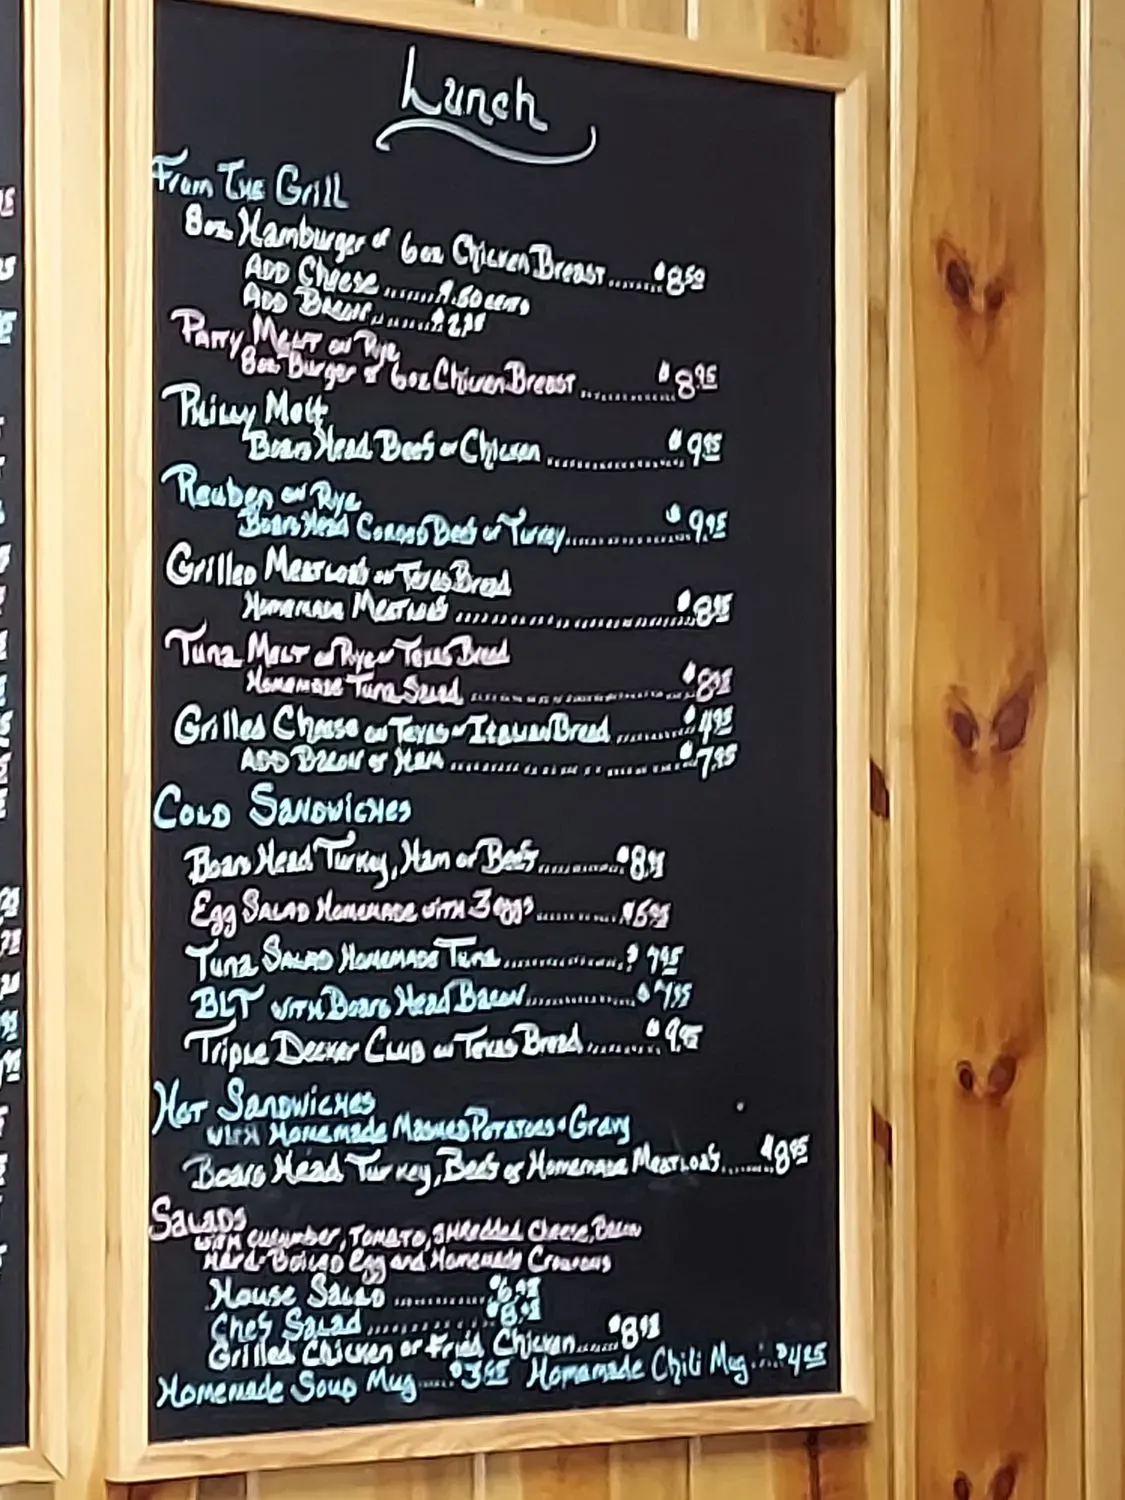 Lunch
From The Grill
8oz Hamburger or 6oz Chicken Breast......$8.50
Add Cheese........ .50 cents
Add Bacon..........$2.95
Patty Melt on Rye
8oz Burger or 6oz Chicken Breast............$8.95
Philly Melt
Boars Head Beef or Chicken............$9.95
Reuben on Rye
Boars Head Corned Beef or Turkey............$9.95
Grilled Meatloaf on Texas Bread
Homemade Meatloaf............$8.95
Tuna Melt on Rye or Texas Bread
Homemade Tuna Salad............$8.95
Grilled Cheese on Texas or Italian Bread........$4.95
Add Bacon or Ham............$7.95
Cold Sandwiches
Boars Head Turkey, Ham or Beef.........$8.95
Egg Salad Homemade with 3 eggs.........
Tuna Salad Homemade Tuna............$7.95
BLT with Boars Head Bacon............$7.95
Triple Decker Club on Texas Bread.........$9.95
Hot Sandwiches
with Homemade Mashed Potatoes & Gravy
Boars Head Turkey, Beef or Homemade Meatloaf......$8.95
Salads
with cucumber, Tomato, Shredded Cheese, Bacon
Hard-Boiled Egg and Homemade Croutons
House Salad............$6.95
Chef Salad............$8.95
Grilled Chicken or Fried Chicken.....$8.95
Homemade Soup Mug.....
Homemade Chili Mug....